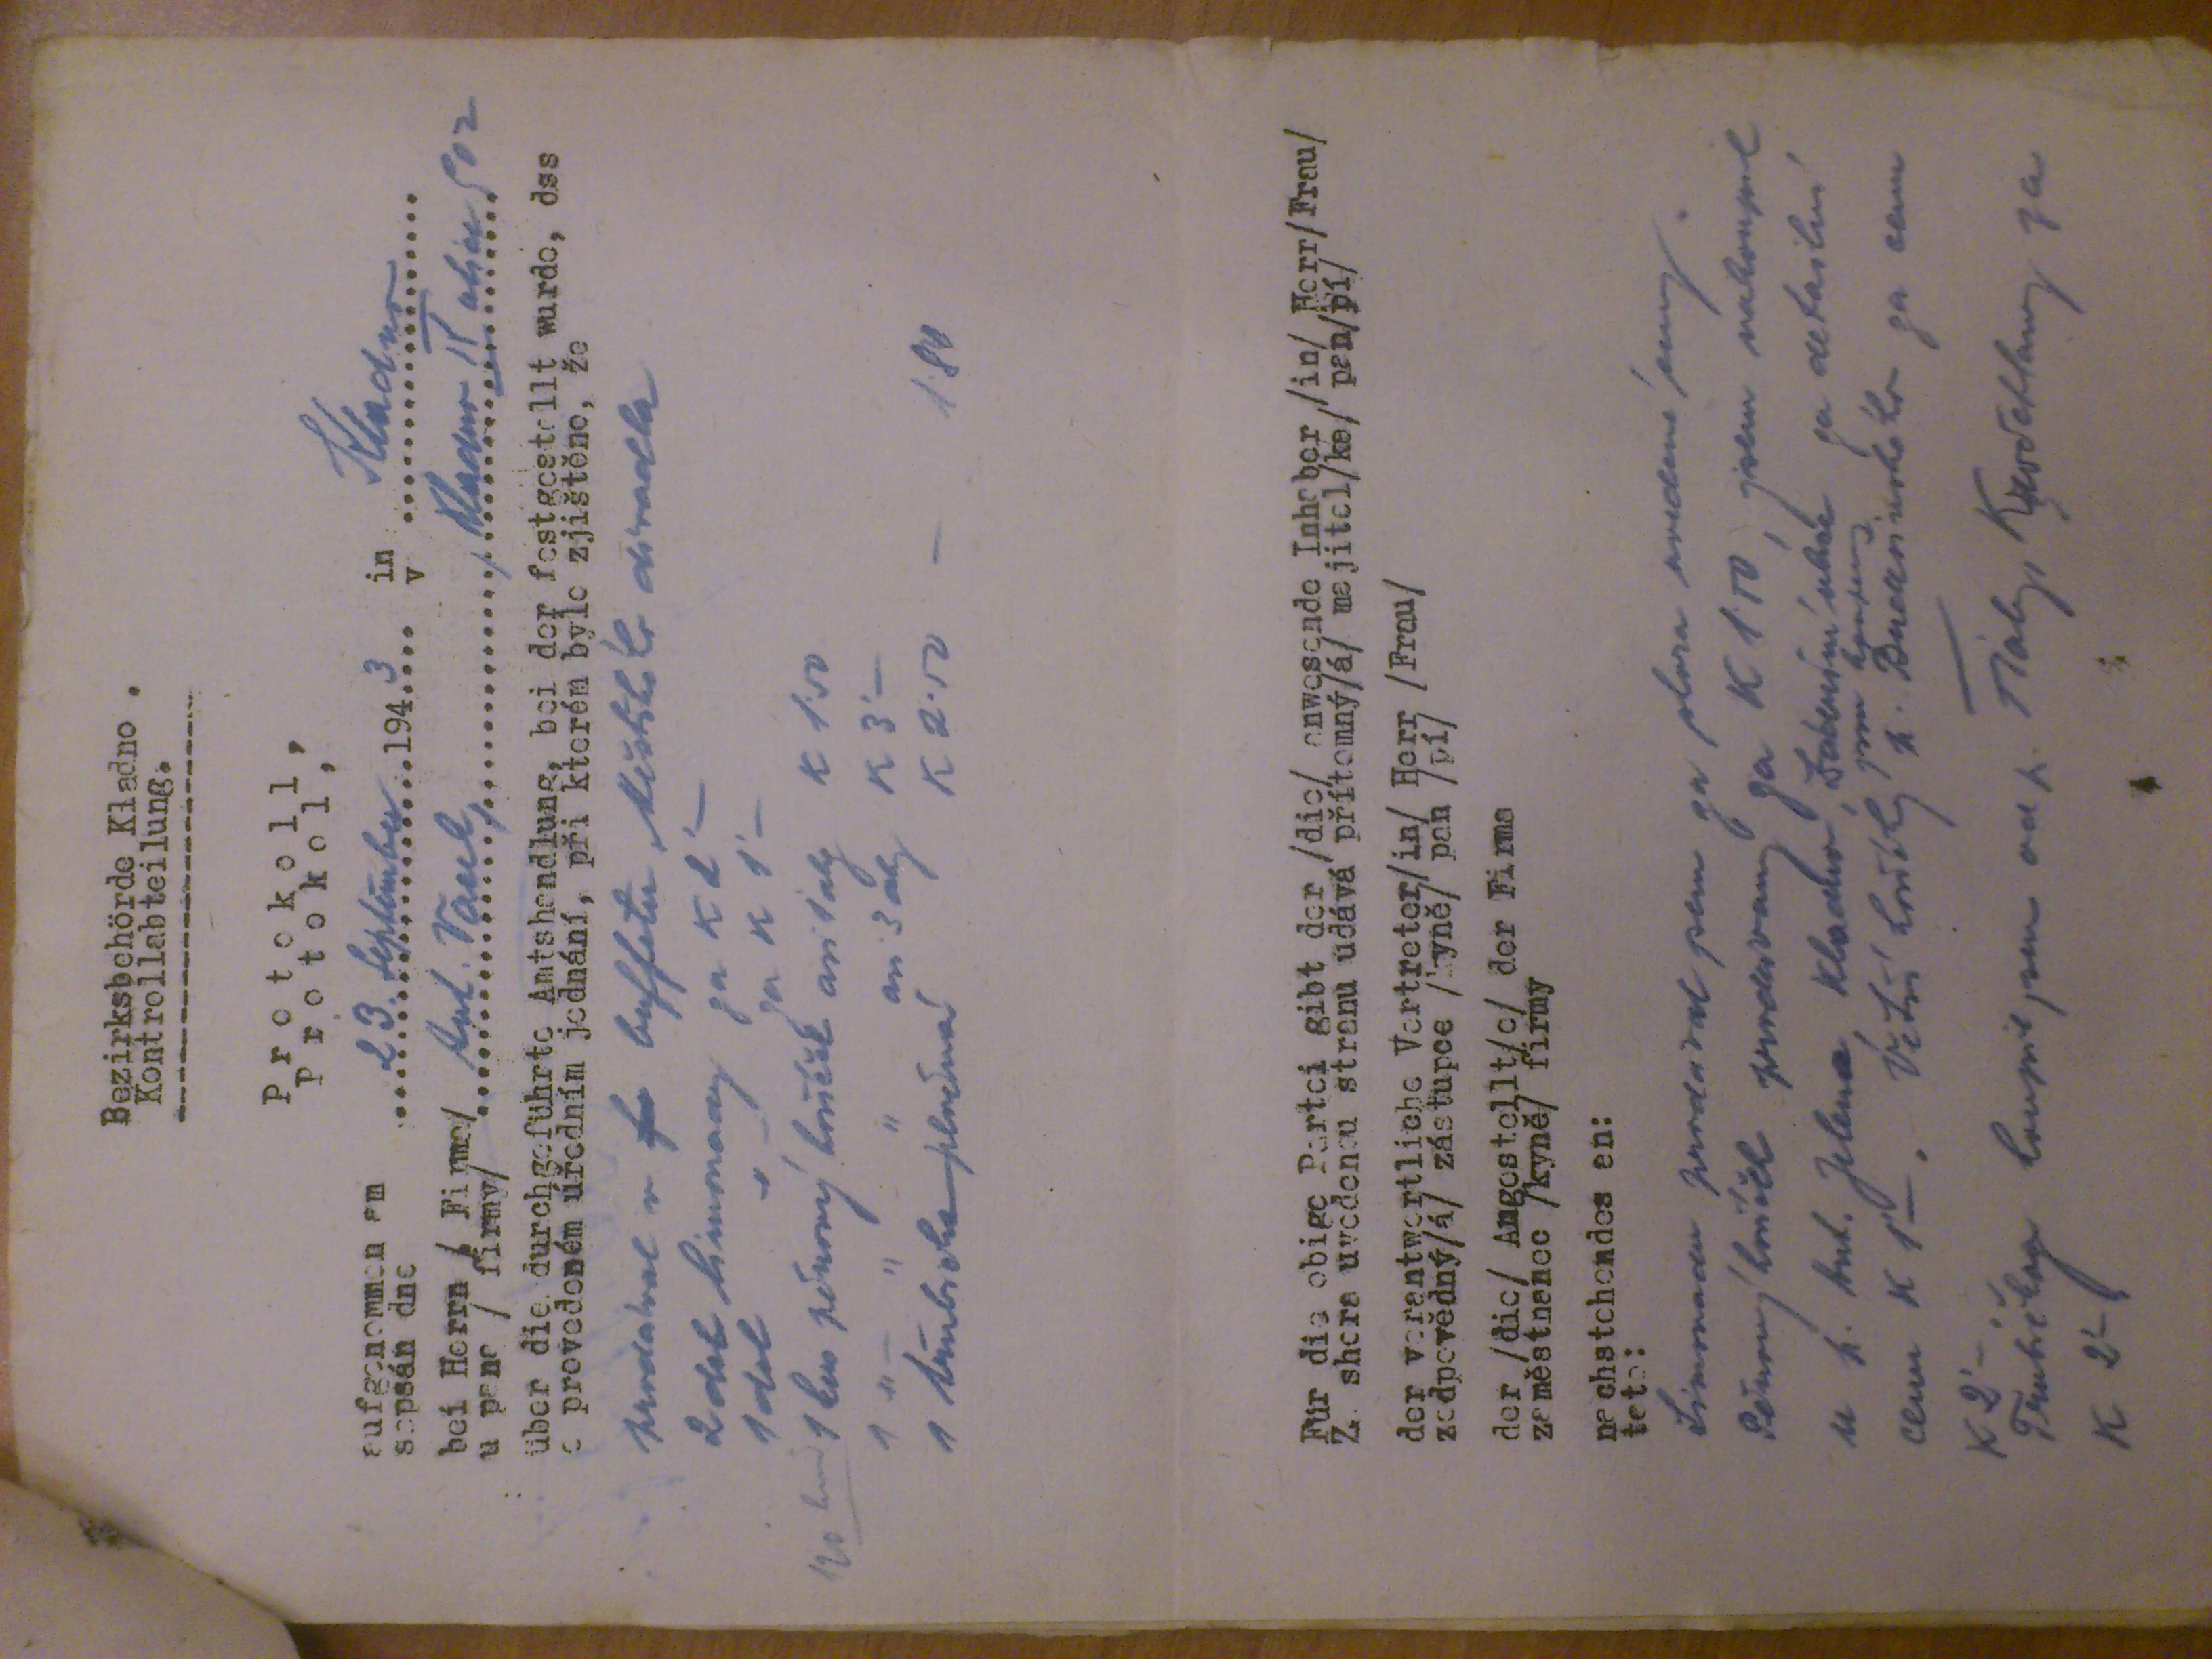 Bezirksbehörde Kladno .
Kontrollabteilung.
P r o t o k o l l ,
P r o t o k o l ,
aufgenommen am 23. September 1943 in Kladno
sepsán dne v
bei Herrn / Firma/ Ant. , Kladno ulice 502
u pana / firmy/
über die durchgeführte Amtshandlung, bei der festgestellt wurde, dss
o provedeném úředním jednání, při kterém bylo zjištěno, že
prodával v buffetu Městského divadla
2 dcl limonady za K 2'—
1 dcl -„- za K 1'—
1 kus pěnový košíček asi 1 dkg K 1.50
1 „— „ „ asi 3 dkg K 3'—
1 trubička plněná K 2.50 — 1.80
Für die obige Partei gibt der /die/ anwesende Inhaber /in/ Herr/Frau/
Za shora uvedenou stranu udává přítomný/á/ majitel/ka/ pan/pí/
der verantwortliche Vertreter/in/ Herr /Frau/
zodpovědný/á/ zástupce /kyně/ pan /pí/
der /die/ Angestellt/e/ der Firma
zaměstnanec /kyně/ firmy
nachstehendes an:
toto:
Limonadu prodával jsem za shora uvedené ceny.
Pěnový košíček prodávaný za K 1'50, jsem nakoupil
u p. Ant. Jelena, Kladno, ulice za detailní
cenu K 1'—. Větší košíčky p. za cenu
jsou koupeny
K 2'—.
koupil jsem od p. za
K 2'—